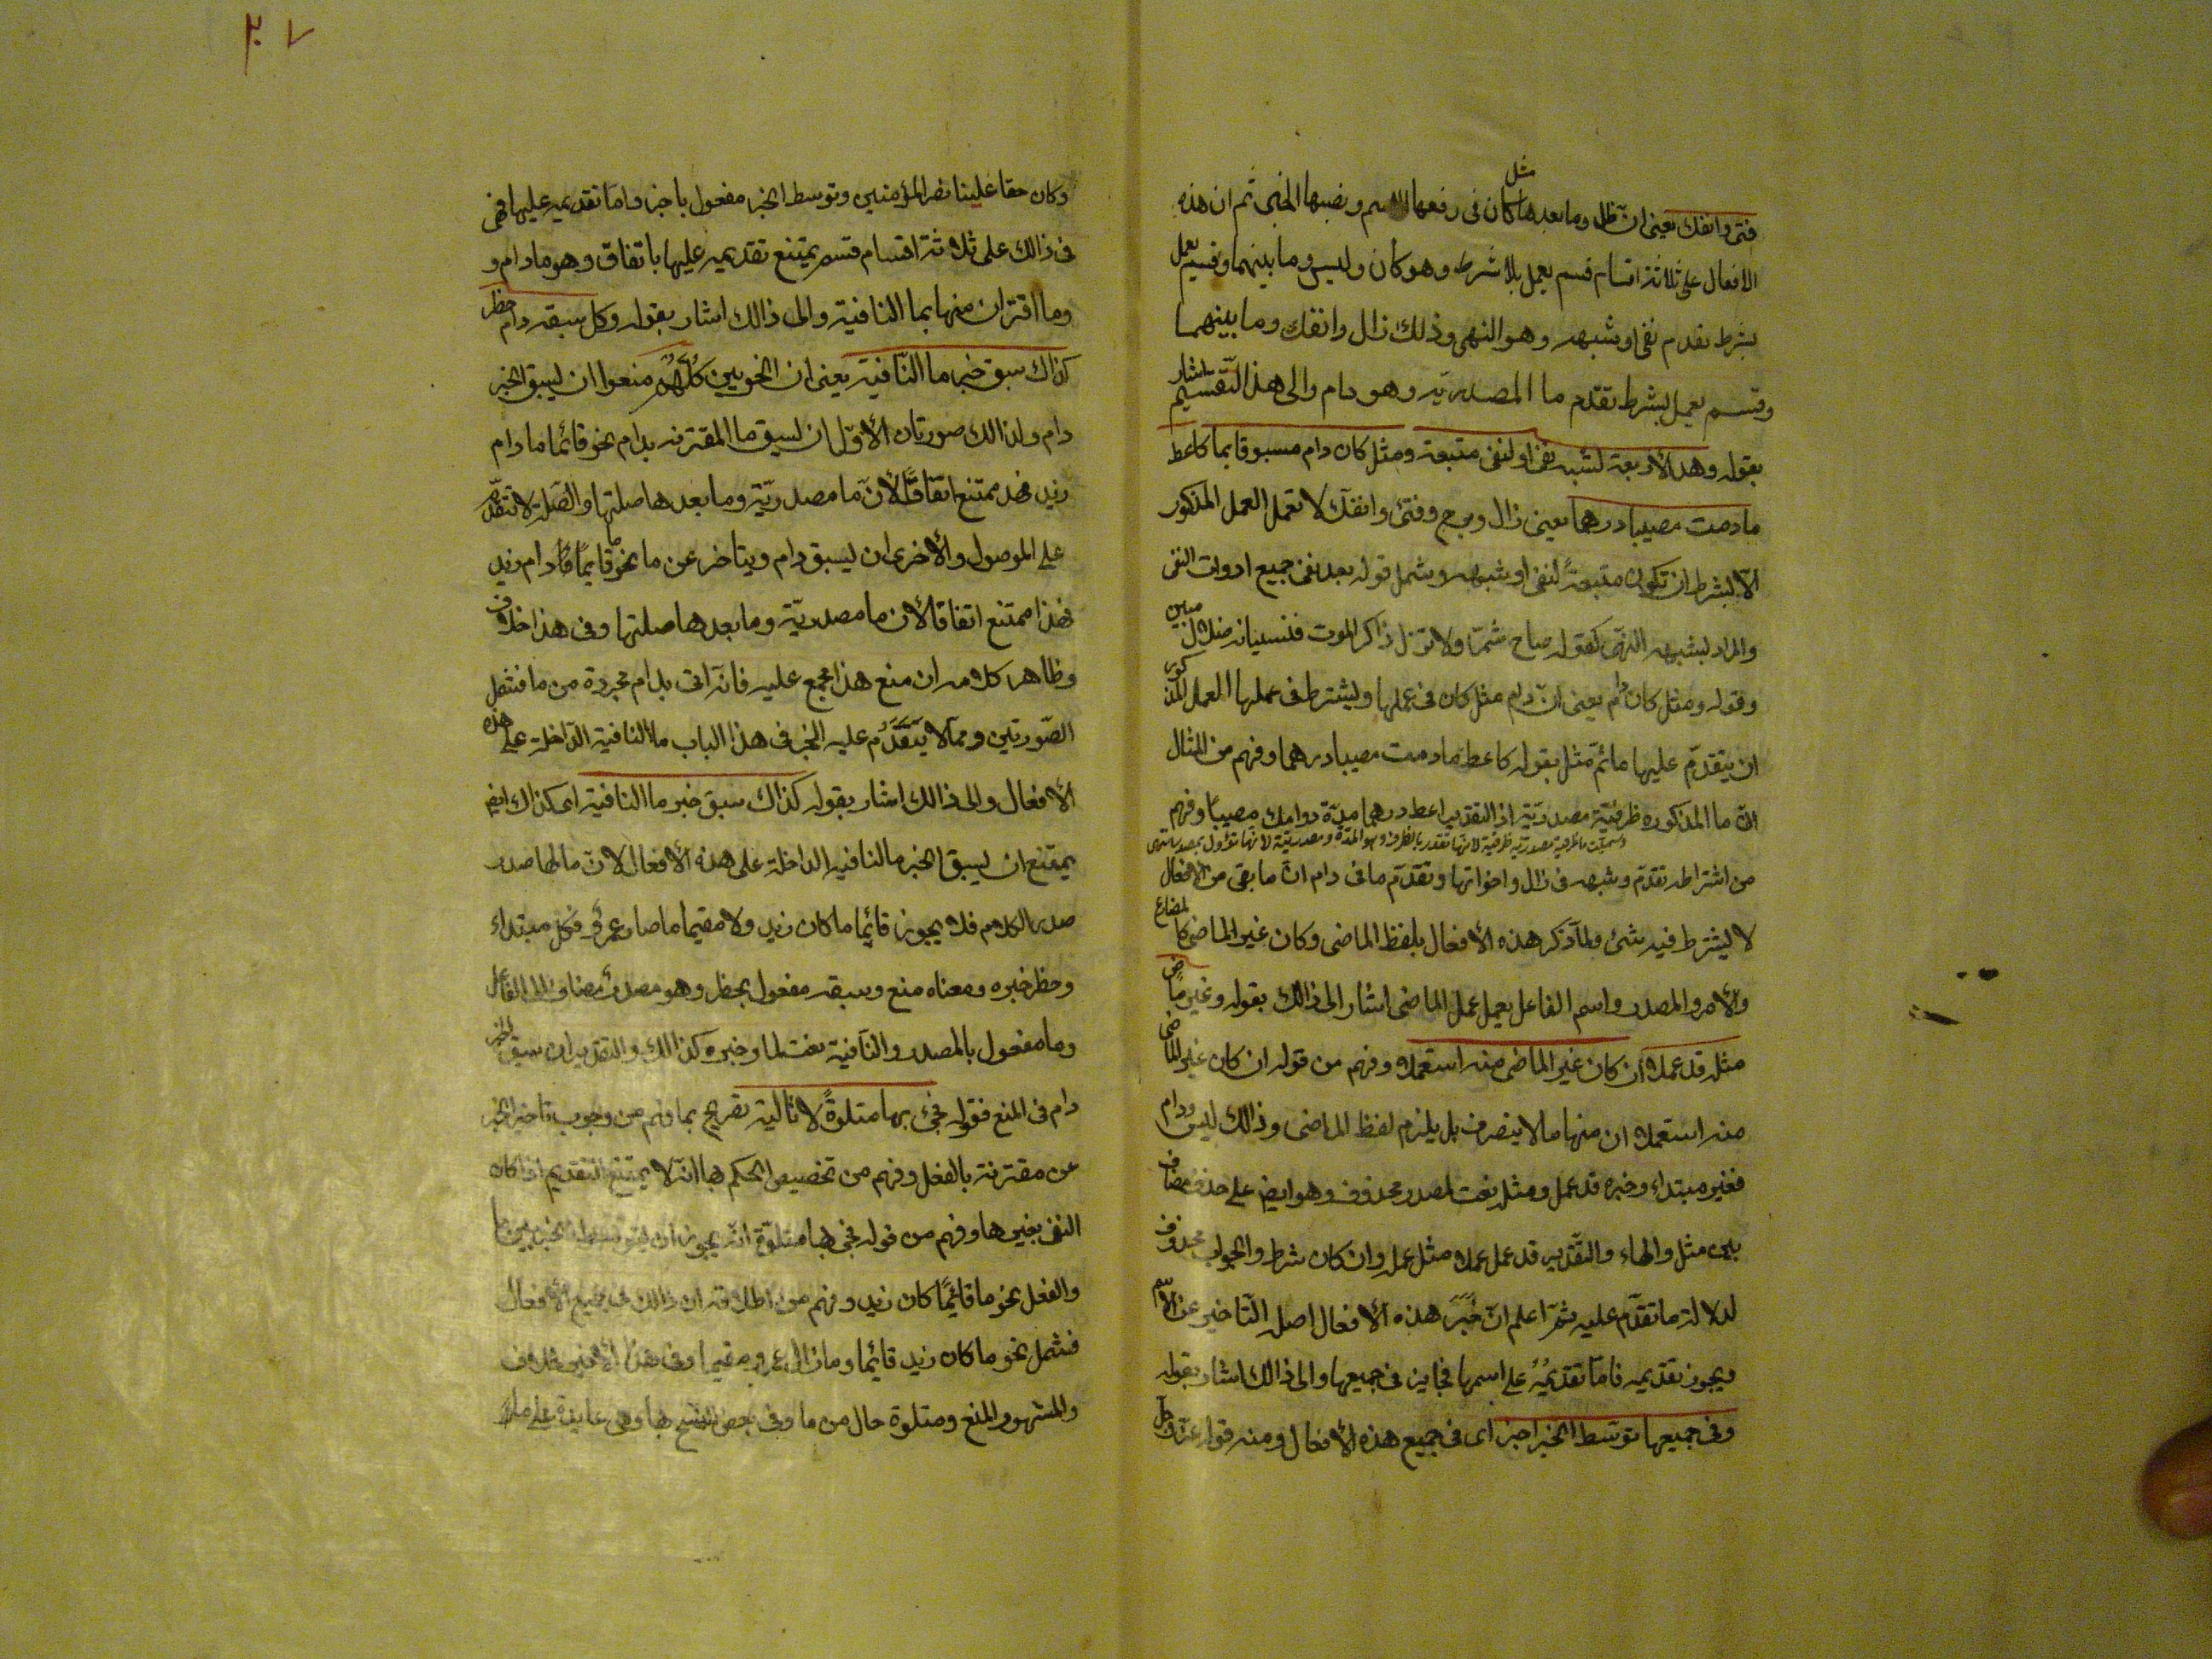 مثل
فتئ وانفك يعنى ان ظل وما بعدها ككان فى رفعها الاسم ونصبها الخبر ثم ان هذه
الافعال على ثلاثة اقسام قسم يعمل بلا شرط وهو كان وليس وما بينهما وقسم يعمل
بشرط تقدم نفى او شبهه وهو النهى وذلك زال وانفك وما بينهما
وقسم يعمل بشرط تقدّم ما المصدريّه وهو دام والى هذا التّقسيم اشار
بقوله وهذ الأربعة لشبه نفى او لنفى متبعة ومثل كان دام مسبوقا بما كاعط
مادمت مصيبا درهما يعنى زال وبرح وفتئ وانفكّ لا تعمل العمل المذكور
الّا بشرط ان تكون متبعةً لنفى او شبهه وشمل قوله بعد نفى جميع ادوات النفى
والمراد بشبهه النهى كقوله صاح شمّر ولا تزل ذاكر الموت فنسيانه ضلال مبين
وقوله ومثل كان دام يعنى انّ دام مثل كان فى عملها ويشترط فى عملها العمل المذكور
ان يتقدّم عليها ما ثمّ مثل بقوله كاعط مادمت مصيبا درهما وفهم من المثال
انّ ما المذكوره ظرفيّة مصدريّة اذ التقدير اعط درهما مدّة دوامك مصيبا وفهم
وسميّت ما ظرفية مصدريّه ظرفية لانها تقدر بالظرف وهو المدّة ومصدريّة لانها تؤول بمصدر انتهى
من اشتراطه تقدّم وشبهه فى زال واخواتها وتقدّم ما فى دام انّ ما بقى من الافعال
لا يشترط فيه شئ ولمّا ذكر هذه الأفعال بلفظ الماضى وكان غير الماضى كالمضارع
والأمر والمصدر واسم الفاعل يعمل عمل الماضى اشار الى ذالك بقوله وغير ماضٍ
مثله قد عملا ان كان غير الماضى منه استعملا وفهم من قوله ان كان غير الماضى
منه استعملا ان منها ما لا يتصرف بل يلزم لفظ الماضى وذالك ليس ودام
فغير مبتداء وخبره قد عمل ومثله نعت لمصدر محذوف وهو ايضا على حذف مضاف
بين مثل والهاء والتقدير قد عمل عملا مثل عمله وان كان شرط والجواب محذوف
لدلالة ما تقدّم عليه ثمّ اعلم انّ خَبَرَ هذه الأفعال اصله التّاخير عن الاسم
ويجوز تقديمه فامّا تقديمُهُ على اسمها فجايز فى جميعها والى ذالك اشار بقوله
وفى جميعها توسّط الخبر اجز اى فى جميع هذه الأفعال ومنه قوله عزّ وجلّ
٢٠٧
وكان حقا علينا نصر المؤمنين وتوسط الخبر مفعول باجز وامّا تقديمه عليها فهى
فى ذالك على ثلاثة اقسام قسم يمتنع تقديمه عليها باتفاق وهو مادام و
وما اقترن منها بما النافية والى ذالك اشار بقوله وكل سبقه دام حظر
كذاك سبق خبر ما النّافية يعنى ان النحويين كُلَّهُمْ منعوا ان يسبق الخبر
دام ولذالك صورتان الأوّل ان يسبق ما المقترنه بدام نحو قائما ما دام
زيد فهذ ممتنع اتفاقًا لأنّ ما مصدريّة وما بعدها صلتها والصّلة لا تتقدّم
على الموصول والأخرى ان يسبق دام ويتاخر عن ما نحو ما قائمًا دام زيد
فهذا ممتنع اتفاقا لأن ما مصدريّة وما بعدها صلتها وفى هذا خلاف
وظاهر كلامه ان منع هذا مجمع عليه فانّه اتى بدام مجردة من ما فشمل
الصّورتين وممّا لا يَتَقَدَّم عليه الخبر فى هذا الباب ما النافية الدّاخلة على هذه
الأفعال والى ذالك اشار بقوله كذاك سبق خبر ما النافية اى كذاك ايضا
يمتنع ان يسبق الخبر ما النافيه الداخلة على هذه الأفعال لانّ ما لها صدر
صدر الكلام فلا يجوز قائما ما كان زيد ولا مقيما ما صار عمرو فكلّ مبتداء
وحظر خبره ومعناه منع وسبقه مفعول بحظر وهو مصدر مضاف الى الفاعل
وما مفعول بالمصدر والنّافية نعت لما وخبره كذالك والتقدير ان سبق الخبر
دام فى المنع فقوله فجئ بها متلوةً لا تالية تصريح بما فهم من وجوب تاخير الخبر
عن مقترنة بالفعل وفهم من تخصيص الحكم بها انّه لا يمتنع التقديم اذا كان
النفى بغيرها وفهم من قوله فجئ بها متلوّة انّه يجوز ان يتوسط الخبر بين ما
والفعل نحو ما قائمًا كان زيد وفهم من اطلاقه ان ذالك فى جميع الأفعال
فشمل نحو ما كان زيد قائما وما زال عمرو مقيما وفى هذا الأخير خلاف
والمشهور المنع ومتلوة حال من ما وفى بعض النسخ بها وهى عايدة على ما